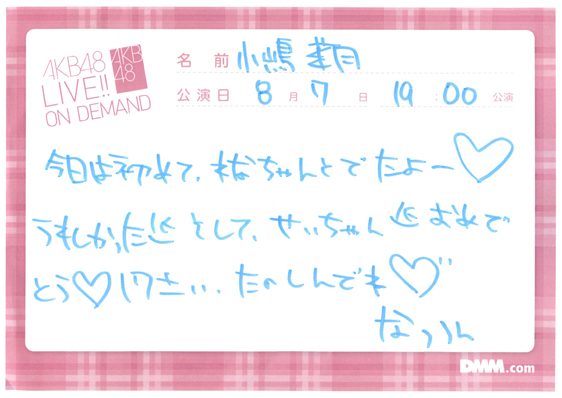 AKB48
LIVE!!
ON DEMAND
AKB
48
名前 小嶋菜月
公演日 8月7日 19:00公演
今日は初めて、ねなちゃんとでたよー♡
うれしかった として、せいちゃん おめで
とう♡17さい、たのしんでね♡
なっつん
DMM.com